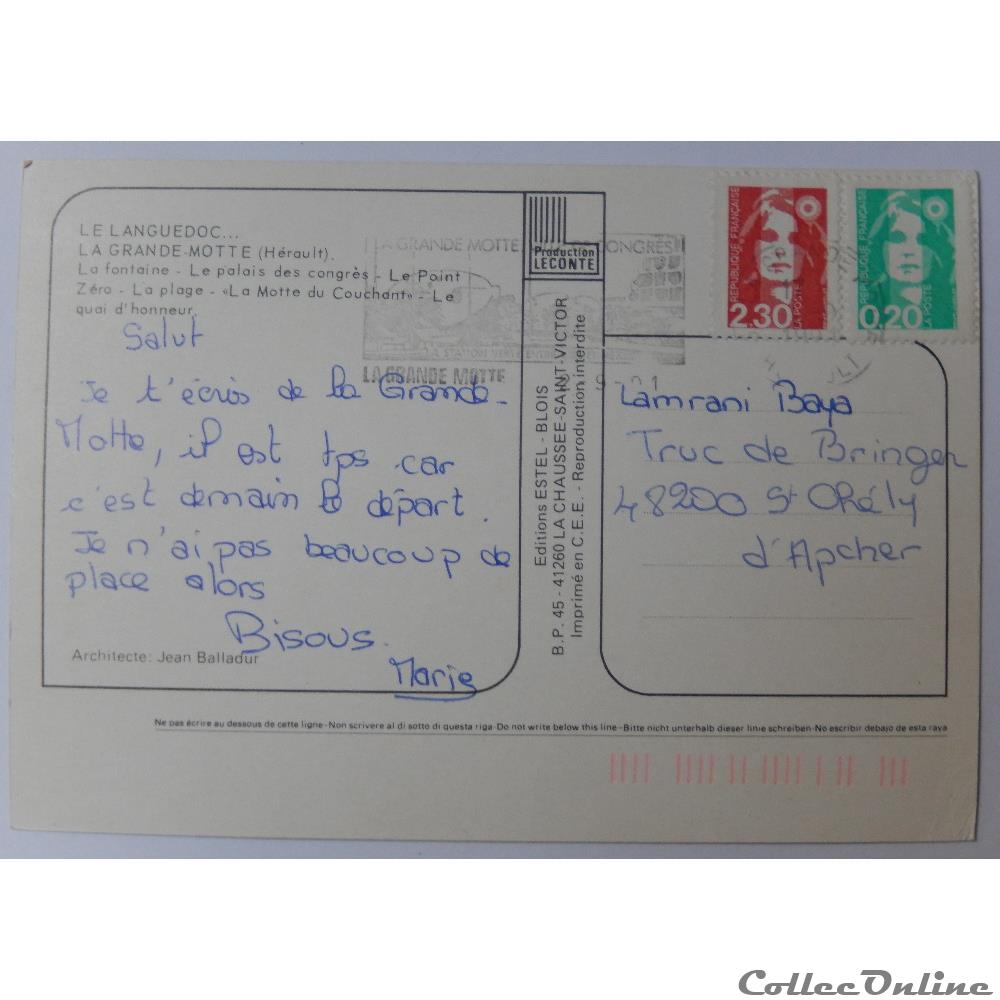 LE LANGUEDOC...
LA GRANDE-MOTTE (Hérault).
La fontaine - Le palais des congrès - Le Point
Zéro - La plage - «La Motte du Couchant» - Le
quai d'honneur.
Salut
Je t'écris de la Grande-
Motte, il est tps car
c'est demain le départ.
Je n'ai pas beaucoup de
place alors
Bisous.
Marie
Architecte: Jean Balladur
LA GRANDE MOTTE
CONGRÈS
LA GRANDE MOTTE
Production
LECONTE
Editions ESTEL - BLOIS
B.P. 45 - 41260 LA CHAUSSEE-SAINT-VICTOR
Imprimé en C.E.E. - Reproduction interdite
REPUBLIQUE FRANÇAISE
2.30
LA POSTE
REPUBLIQUE FRANÇAISE
0,20
LA POSTE
Lamrani Baya
Truc de Bringer
48200 St Chély
d'Apcher
Ne pas écrire au dessous de cette ligne-Non scrivere al di sotto di questa riga-Do not write below this line-Bitte nicht unterhalb dieser linie schreiben-No escribir debajo de esta raya
CollecOnline